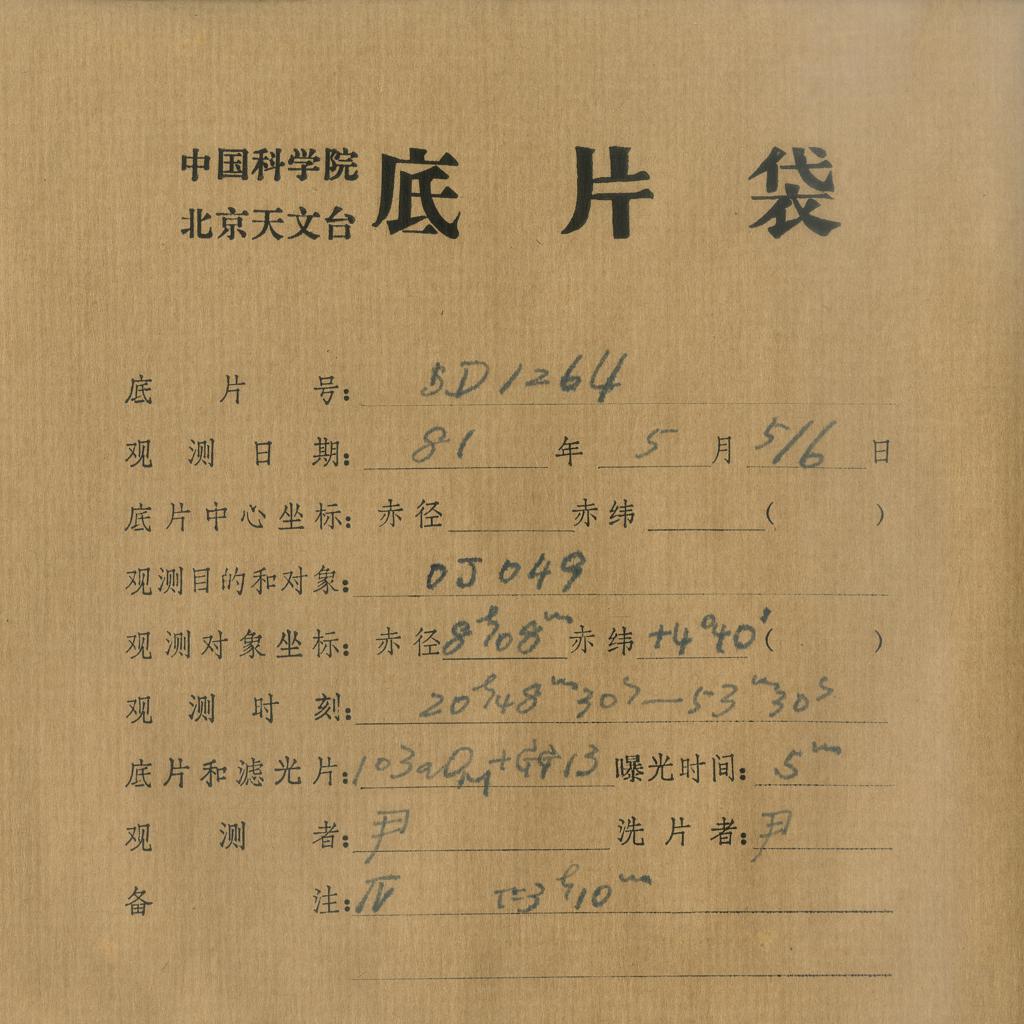 中国科学院
北京天文台 底片袋
底片号: BD1264
观测日期: 81 年 5 月 5/6 日
底片中心坐标: 赤径 赤纬 ( )
观测目的和对象: OJ 049
观测对象坐标: 赤径 8ʰ08ᵐ 赤纬 +4°40′ ( )
观测时刻: 20ʰ48ᵐ30ˢ—53ᵐ30ˢ
底片和滤光片: 103aO+GG13 曝光时间: 5ᵐ
观测者: 尹 洗片者: 尹
备注: IV t=3ʰ10ᵐ